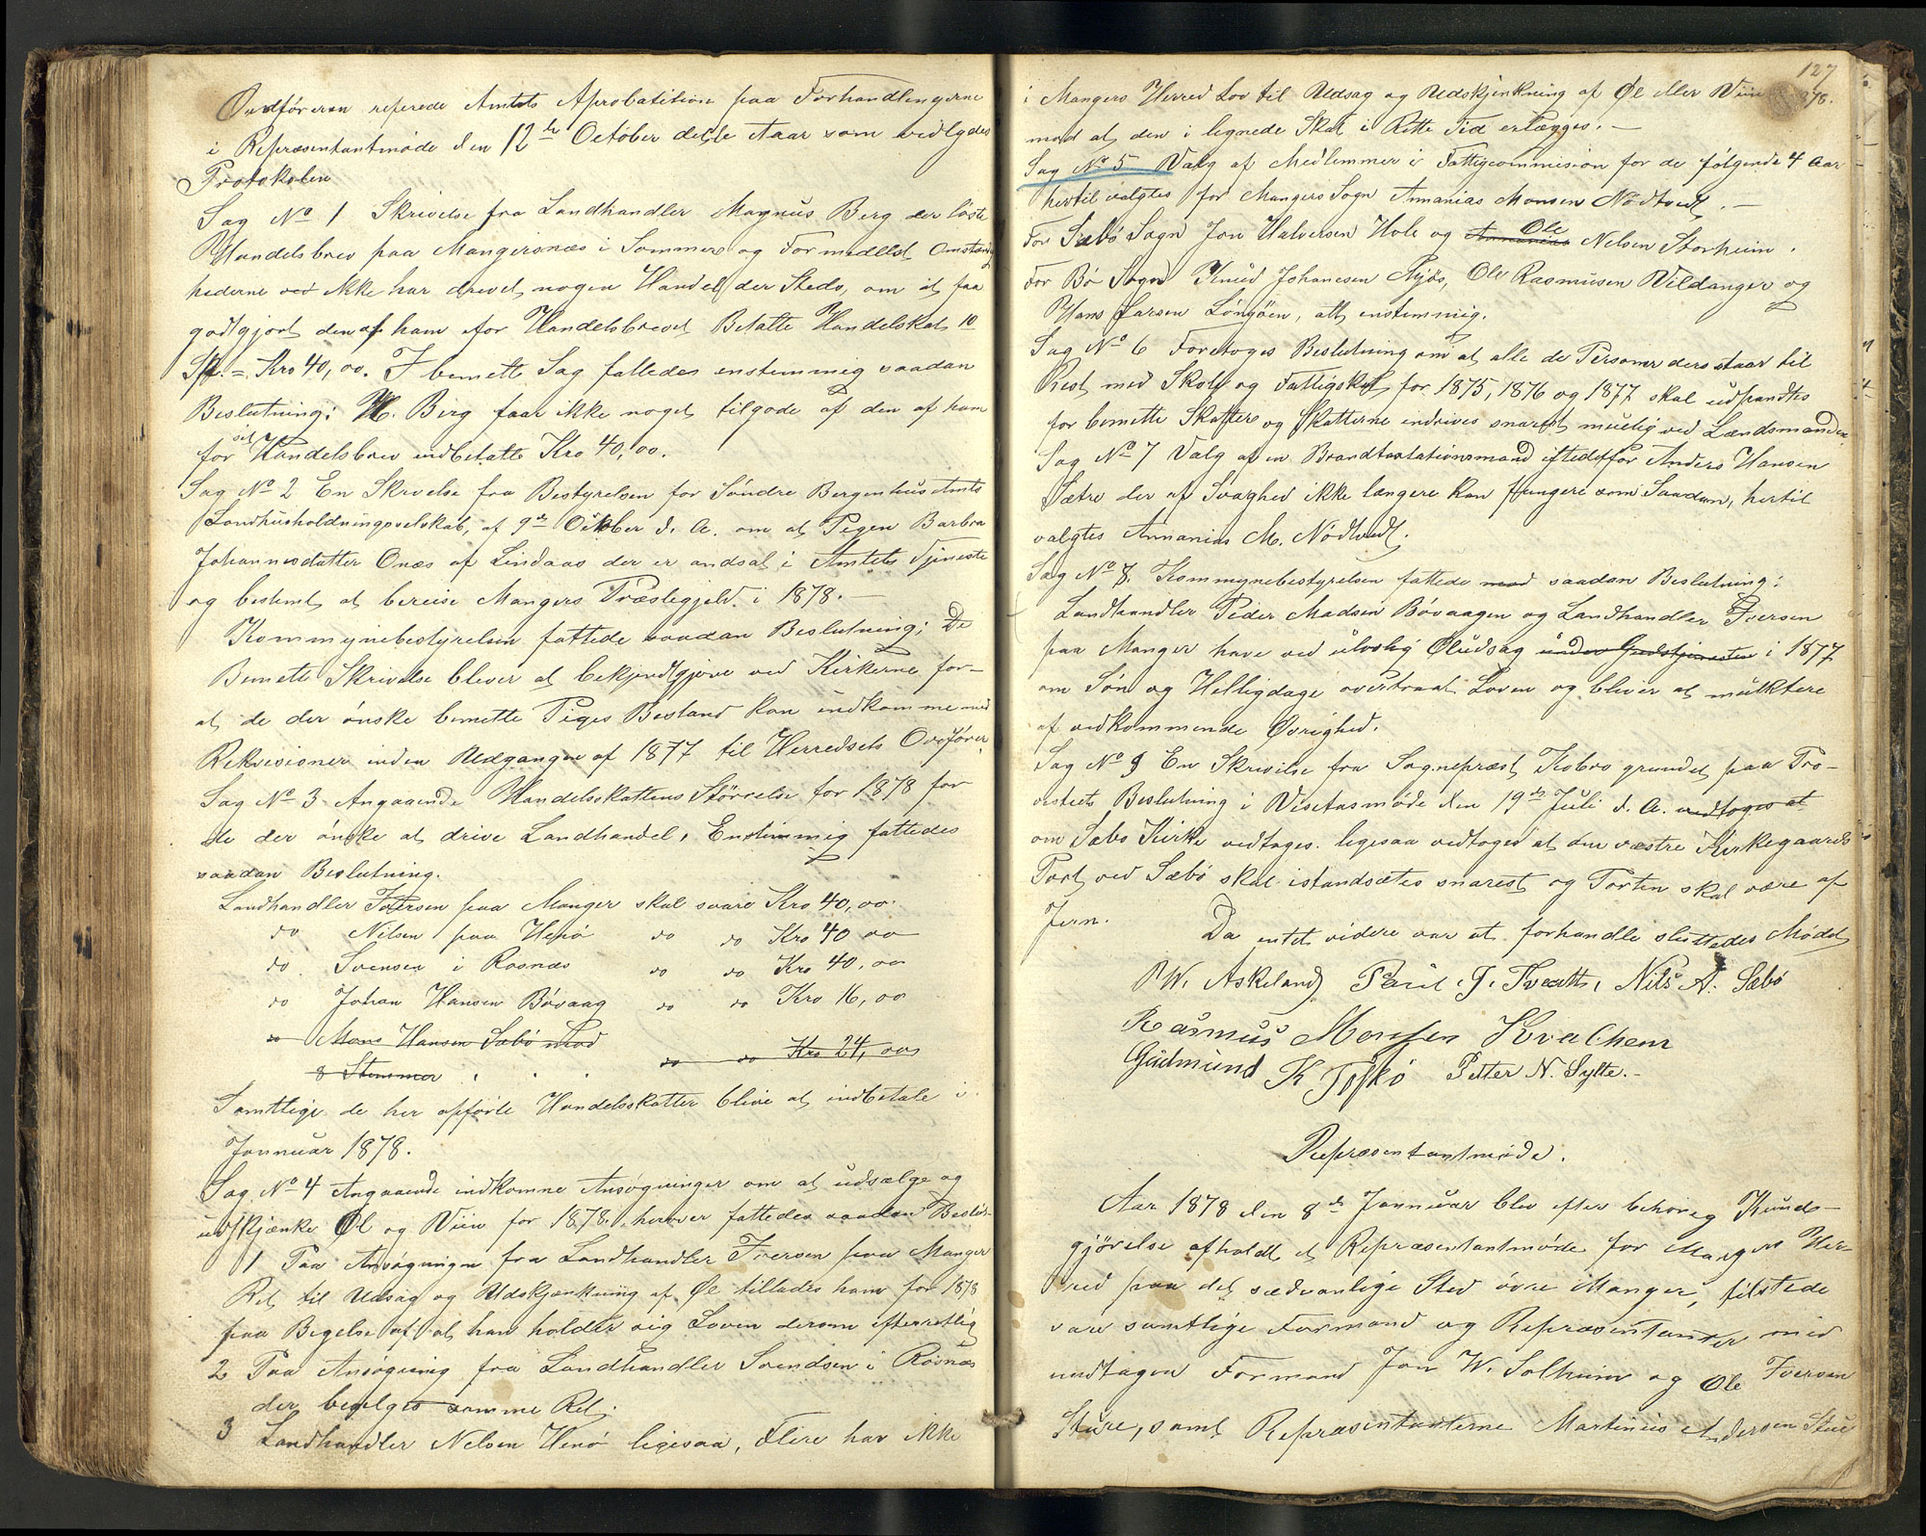 Ordföreren referede Amtets Aprobatition paa Forhandlingerne
i Repræsentantmøde den 12te October dette Aar som vedlydes
Protokolen
Sag No 1 Skrivelse fra Landhandler Magnus Berg der löste
Handelsbrev paa Mangersnæs i Sommer og Formedelst Omstæn
hederne ved ikke har drevet nogen Handel der Steds, om at faa
godtgjort den af ham for Handelsbrevet Betalte Handelskat 10
Spd. = Kro 40,00. I bemelte Sag fattedes enstemmig saadan
Beslutning: M. Berg faar ikke noget tilgode af den af ham
for sit Handelsbrev indbetalte Kro 40,00.
Sag No 2 En Skrivelse fra Bestyrelsen for Söndre Bergenhus Amts
Landhusholdningsselskab, af 9de Oktober d. A. om at Pigen Barbra
Johannesdatter Onæs af Lindaas der er andsat i Amtets Tjeneste
og bestemt at bereise Mangers Præstegjeld i 1878. —
Kommynebestyrelsen fattede saadan Beslutning; De
Bemelte Skrivelse bliver at bekjendtgjøre ved Kirkerne for-
at de der önske bemelte Piges Bestand kan indkomme med
Rekvisioner inden Udgangen af 1877 til Herredets Ordfører
Sag No 3 Angaaende Handelsskattens Störrelse for 1878 for
de der önske at drive Landhandel, Enstimmig fattedes
saadan Beslutning.
Landhandler Iversen paa Manger skal svare Kro 40,00.
do Nilsen paa Hejö do do Kro 40 00
do. Svensen i Rosnæs do do Kro 40,00
do Johan Hansen Bövaag do do Kro 16,00
do Mons Hansen Sæbö mod do do Kro 24,00
8 Stemmer
Samtlige de her opförte Handelsskatter blive at indbetale i
Jannuar 1878.
Sag No 4 Angaaende indkomne Ansögninger om at udsælge og
udskjænke Øl og Viin for 1878, herover fattedes saadan Beslut-
1 Paa Ansøgningen fra Landhandler Iversen paa Manger
Ret til Udsag og Udskjænkning af Øl tillades ham for 1878
paa Begelse af at han holder sig Loven dersom efterretlig
2 Paa Ansögning fra Landhandler Svendsen i Rosnæs
der bevilges samme Ret.
3 Landhandler Nelsen Henö ligesaa, Flere har ikke
127
1878.
i Mangers Herred Lov til Udsag og Udskjenkning af Øl eller Viin
mod at den i lignede Skat i Rette Tid erlægges. —
Sag No 5 Valg af Medlemmer i Fattigcommision for de følgende 4 Aar
hertil valgtes for Mangers Sogn Annanias Monsen Nödtvedt. —
For Sæbö Sogn Jon Halversen Hole og Annanias Ole Nelsen Storheim.
For Bö Sogn Knud Johanesen Ryös, Ole Rasmusen Vildanger og
Hans Larsen Löngöen, alt enstemmig.
Sag No 6 Foretoges Beslutning om at alle de Personer der staar til
Rest med Skole og Fattigskat for 1875, 1876 og 1877 skal udpandtes
for bemelte Skatter og Skatterne indrives snarest muelig ved Lændsmanden
Sag No 7 Valg af en Brandtaxlationsmand istedetfor Anders Hansen
Sætre der af Svaghed ikke længere kan fungere som Saadan, hertil
valgtes Annanias M. Nödtvedt.
Sag No 8. Kommynebestyrelsen fattede mod saadan Beslutning:
Landhandler Peder Madsen Bövaagen og Landhandler Iversen
paa Manger have ved ulovlig Øludsag under Gudstjenesten i 1877
om Søn og Helligdage overtraat Loven og bliver at mulktere
af vedkommende Øvrighed.
Sag No 9 En Skrivelse fra Sognepræst Kobro grundet paa Pro-
vstets Beslutning i Visetasmøde den 19de Juli d. A. vedtoges at
om Sæbø Kirke vedtages. ligesaa vedtoges at den væstre Kirkegaards
Port ved Sæbö skal istandsættes snarest og Porten skal være af
Jern.
Da intet videre var at forhandle sluttedes Mødet
W. Askeland Paul J. Tveitt, Nils A. Sæbö
Rasmus Monssen Kvalhem
Gudmund K Toskö Petter N. Sylte. —
Repræsentantmøde.
Aar 1878 den 8de Jannuar blev efter behörig Kunds-
gjörelse afholdt et Repræsentantmøde for Mangers Her-
red paa det sædvanlige Sted övre Manger, tilstede
vare samtlige Formænd og Repræsentanter med
undtagen Formand Jon W. Solheim og Ole Iversen
Sture, samt Repræsentanterne Martinus Andersen Stue